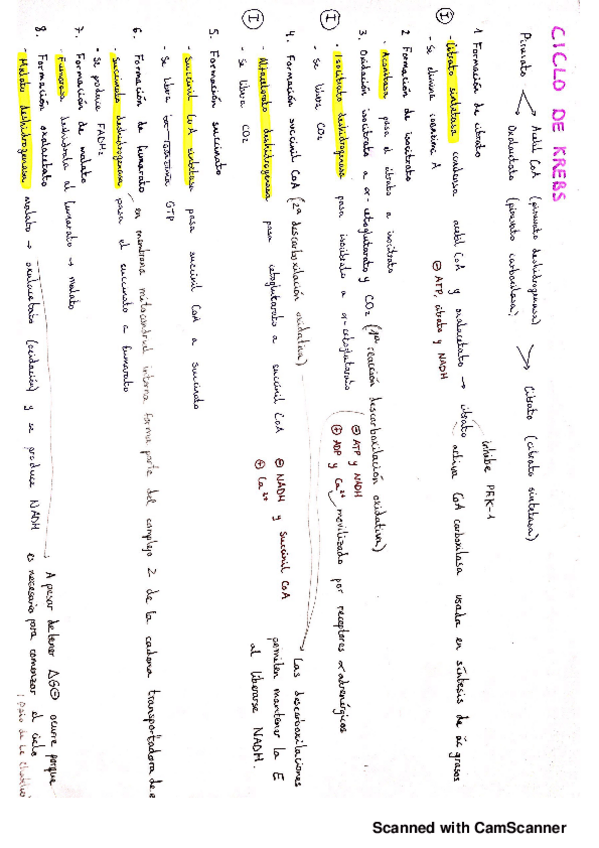 CICLO DE KREBS
Piruvato
Acetil CoA (piruvato deshidrogenasa)
Oxalacetato (piruvato carboxilasa)
Citrato (citrato sintetasa)
1 Formación de citrato
Ⓘ - Citrato sintetasa condensa acetil CoA y oxalacetato → citrato
inhibe PFK-1
activa CoA carboxilasa usada en síntesis de ác grasos
- Se elimina coenzima A
⊖ ATP, citrato y NADH
2 Formación de isocitrato
- Aconitasa pasa el citrato a isocitrato
3. Oxidación isocitrato a α-cetoglutarato y CO₂ (1ª reacción descarboxilación oxidativa)
Ⓘ - Isocitrato deshidrogenasa pasa isocitrato a α-cetoglutarato
⊖ ATP y NADH
⊕ ADP y Ca²⁺ movilizado por receptores α adrenérgicos
- Se libera CO₂
4. Formación succinil CoA (2ª descarboxilación oxidativa)
Las descarboxilaciones
permiten mantener la E
al liberarse NADH.
Ⓘ - deshidrogenasa pasa cetoglutarato a succinil CoA
⊖ NADH y succinil CoA
⊕ Ca²⁺
- Se libera CO₂
5. Formación succinato
- Succinil CoA sintetasa pasa succinil CoA a succinato
- Se libera GTP
6. Formación de fumarato en membrana mitocondrial interna forma parte del complejo 2 de la cadena transportadora de e
- Succinato deshidrogenasa pasa el succinato a fumarato
- Se produce FADH₂
7. Formación de malato
- Fumarasa deshidrata al fumarato → malato
8. Formación oxalacetato
- Malato deshidrogenasa malato → oxalacetato (oxidación) y se produce NADH
A pesar de tener ΔG⊕ ocurre porque
es necesario para comenzar el ciclo
Scanned with CamScanner